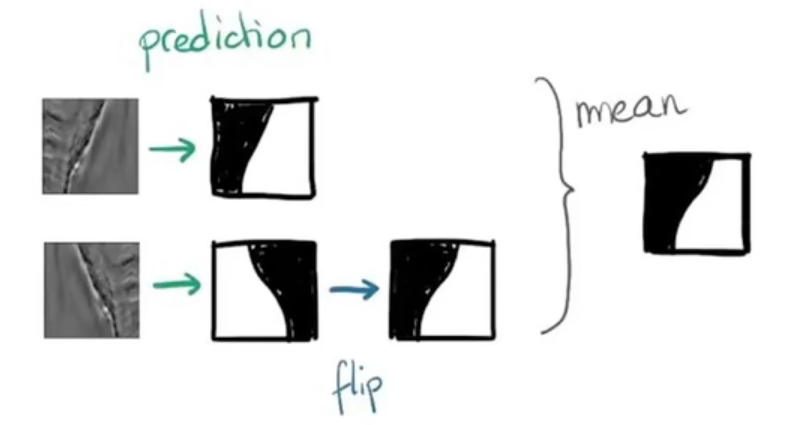 prediction
mean
flip